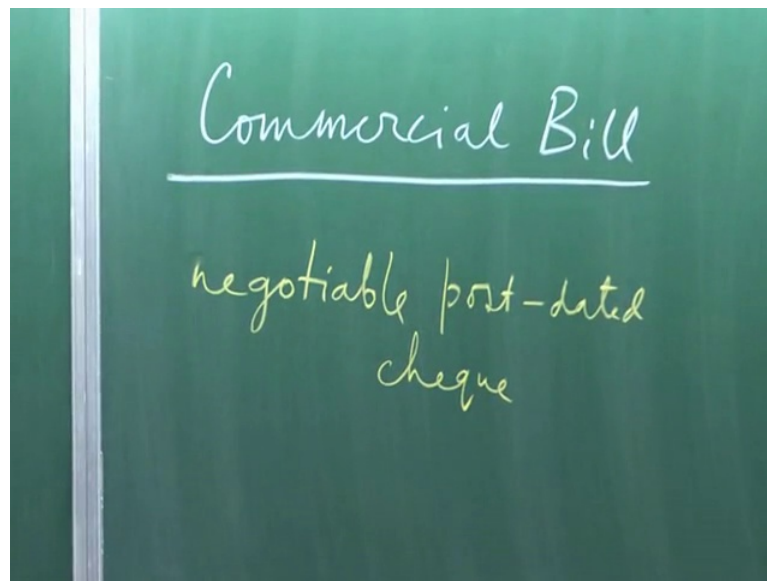 Commercial Bill
negotiable post-dated
cheque